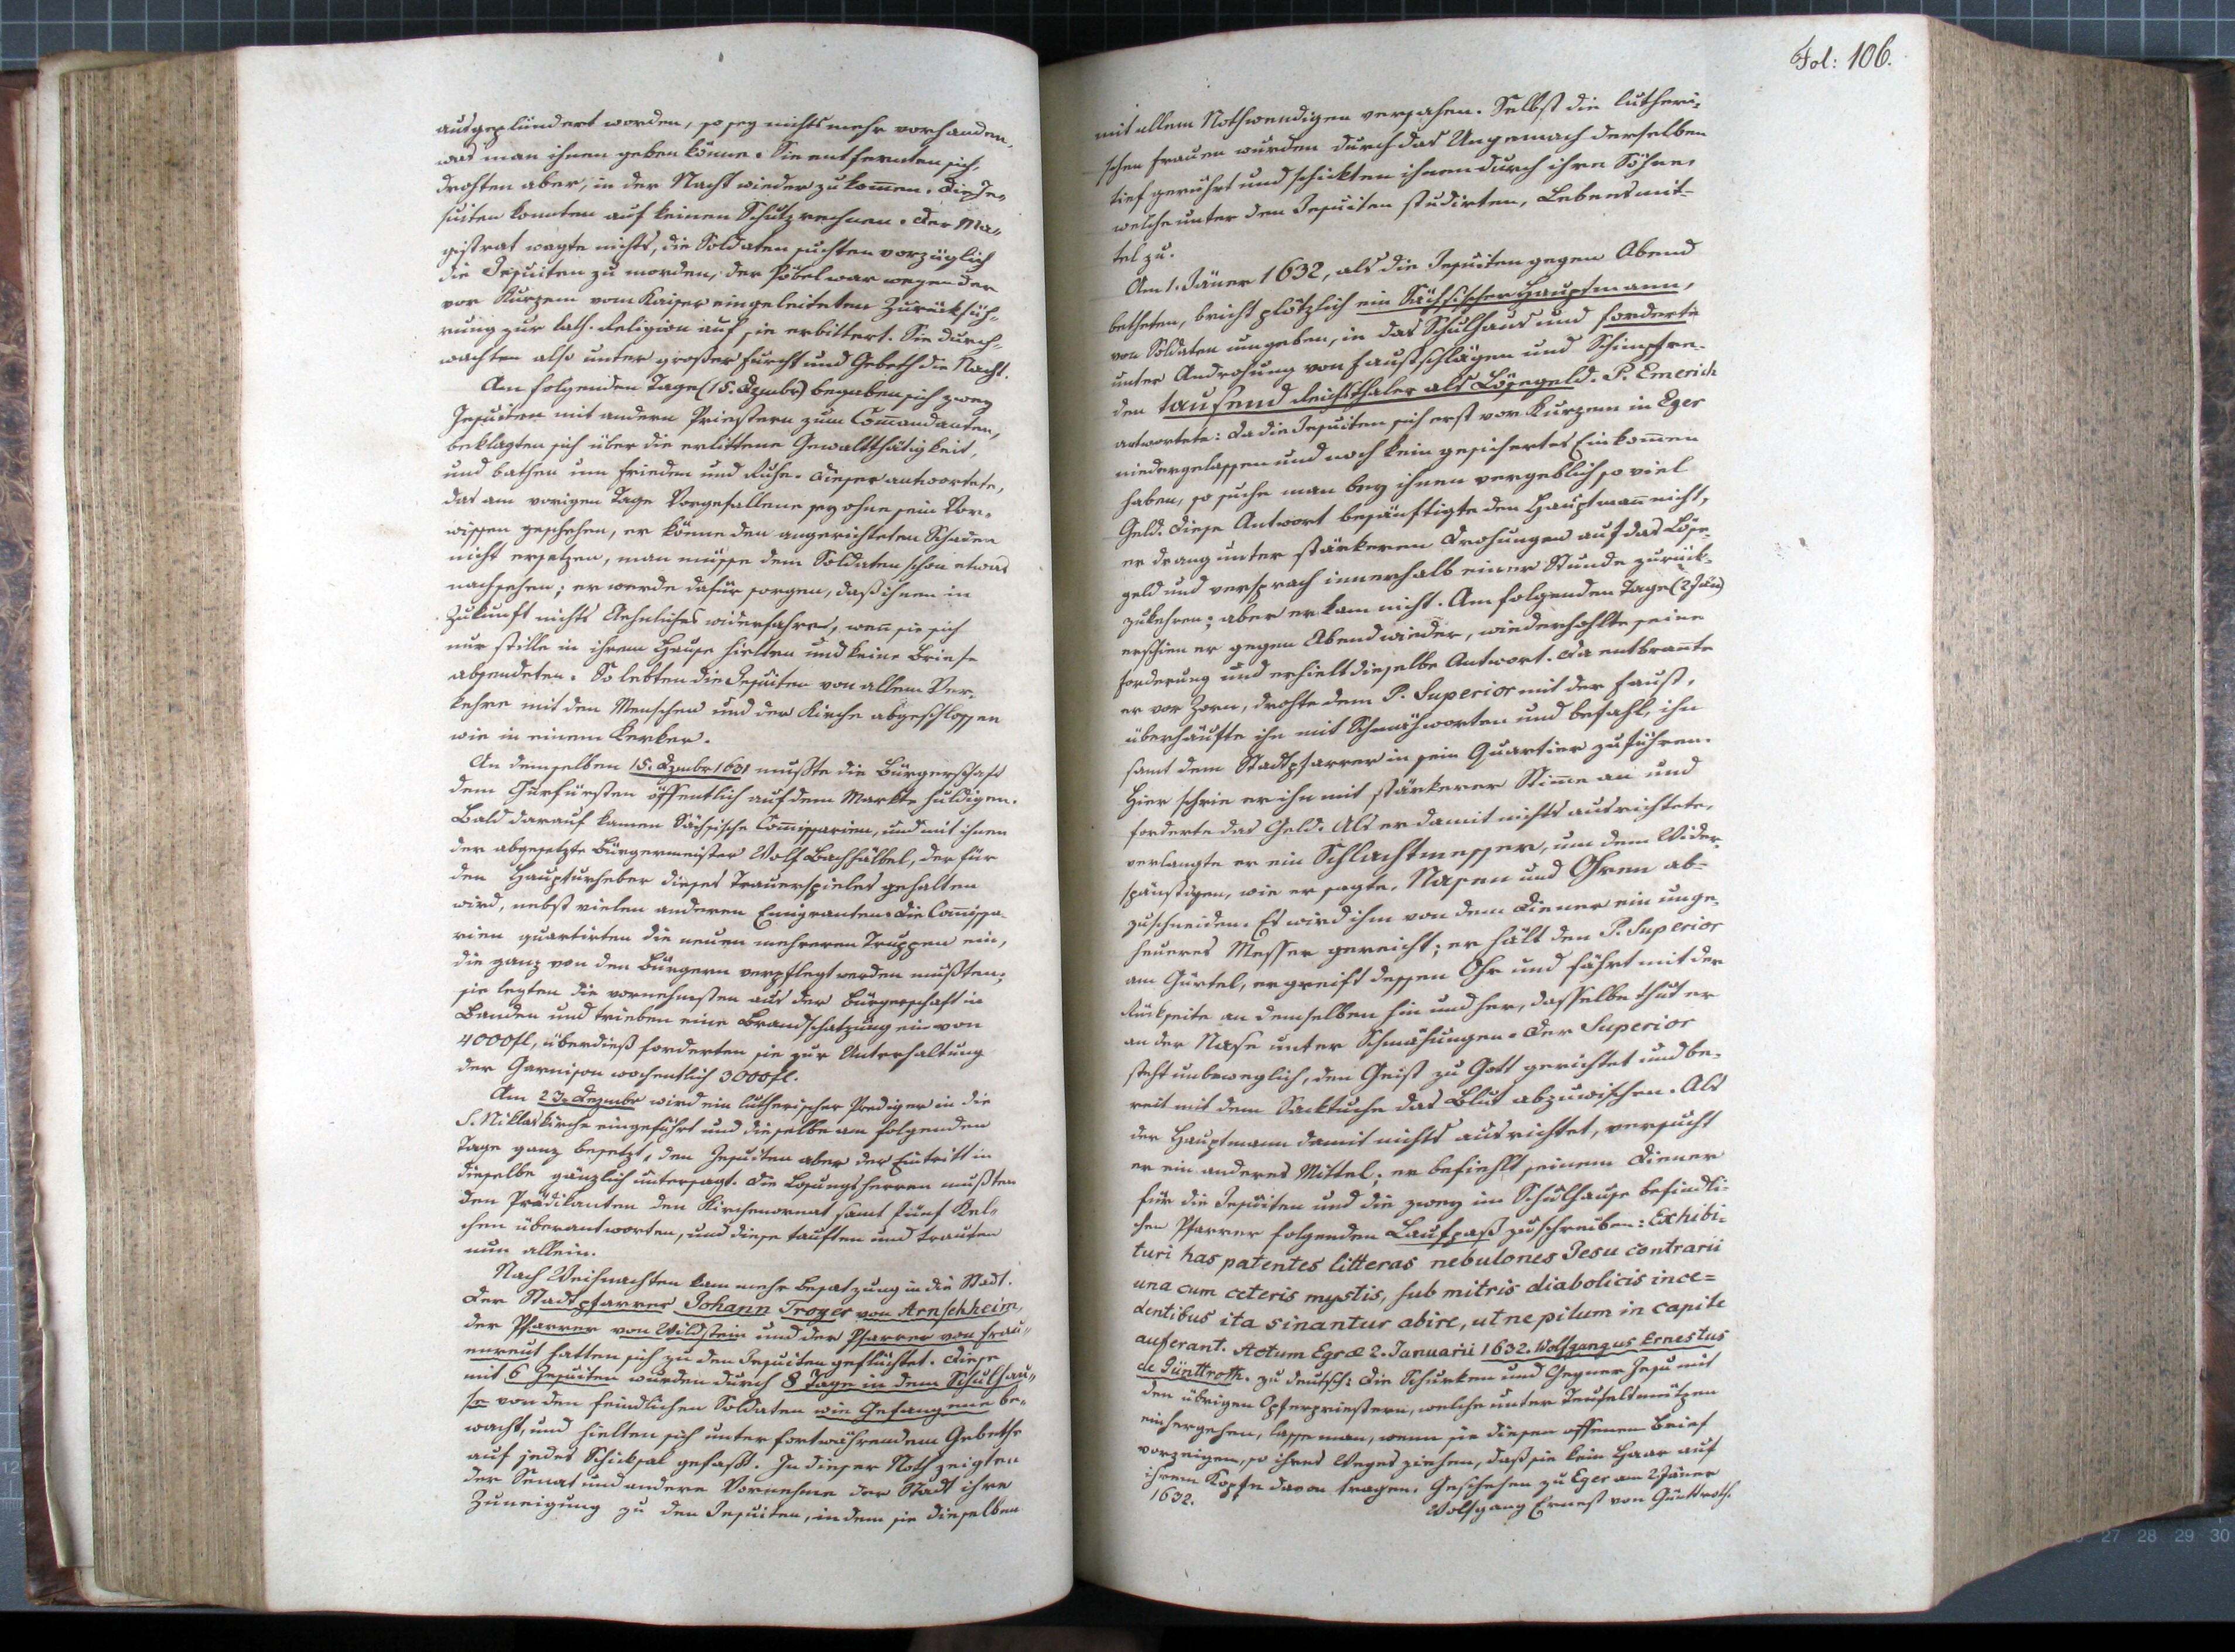 ausgeplündert worden, so sey nichts mehr vorhanden,
was man ihnen geben könne. Sie entfernten sich,
drohten aber, in der Nacht wieder zu kom̅en. Die Je„
suiten konnten auf keinen Schutz rechnen. Der Ma„
gistrat wagte nichts, die Soldaten suchten vorzüglich
die Jesuiten zu morden, der Pöbel war wegen der
vor Kurzem vom Kaiser eingeleiteten Zurückfüh„
rung zur kath. Religion auf sie erbittert. Sie durch„
wachten also unter großer Furcht und Gebeth die Nacht.
Am folgenden Tage (15. Dzmbr) begaben sich zwey
Jesuiten mit andern Priestern zum Com̅andanten,
beklagten sich über die erlittene Gewaltthätigkeit,
und bathen um Frieden und Ruhe. Dieser antwortete,
das am vorigen Tage Vorgefallene sey ohne sein Vor„
wissen geschehen, er könne den angerichteten Schaden
nicht ersetzen, man müsse dem Soldaten schon etwas
nachsehen; er werde dafür sorgen, daß ihnen in
Zukunft nichts Aehnliches widerfahre, wen̅ sie sich
nur stille in ihrem Hause hielten und keine Briefe
absendeten. So lebten die Jesuiten von allem Ver„
kehre mit den Menschen und der Kirche abgeschlossen
wie in einem Kerker.
An demselben 15. Dzmbr 1631 mußte die Bürgerschaft
dem Churfürsten öffentlich auf dem Markte huldigen.
Bald darauf kamen Sächsische Com̅issarien, und mit ihnen
der abgesetzte Bürgermeister Wolf Bachhälbel, der für
den Haupturheber dieses Trauerspieles gehalten
wird, nebst vielen anderen Emigranten. Die Com̅issa„
rien quartirten die neuen mehreren Truppen ein,
die ganz von den Bürgern verpflegt werden mußten;
sie legten die vornehmsten aus der Bürgerschaft in
Banden und trieben eine Brandschatzung ein von
4000fl, überdieß forderten sie zur Unterhaltung
der Garnison wochentlich 3000fl.
Am 23. Dezmbr wird ein lutherischer Prediger in die
S. Niklaskirche eingeführt und dieselbe am folgenden
Tage ganz besetzt, den Jesuiten aber der Eintritt in
dieselbe gänzlich untersagt. Die Losungsherren mußten
den Prädikanten den Kirchenornat samt fünf Kel„
chen überantworten, und diese tauften und trauten
nun allein.
Nach Weihnachten kam mehr Besatzung in die Stadt.
Der Stadtpfarrer Johann Troyer von Arnschheim,
der Pfarrer von Wildstein und der Pfarrer von Frau„
enreut hatten sich zu den Jesuiten geflüchtet. Diese
mit 6 Jesuiten wurden durch 8 Tage in dem Schulhau„
se von den feindlichen Soldaten wie Gefangene be„
wacht, und hielten sich unter fortwährendem Gebethe
auf jedes Schicksal gefaßt. In dieser Noth zeigten
der Senat und andere Vornehme der Stadt ihre
Zuneigung zu den Jesuiten, indem sie dieselben
Fol: 106.
mit allem Nothwendigen versahen. Selbst die lutheri„
schen Frauen wurden durch das Ungemach derselben
tief gerührt und schickten ihnen durch ihre Söhne,
welche unter den Jesuiten studirten, Lebensmit-
tel zu.
Am 1. Jäner 1632, als die Jesuiten gegen Abend
betheten, bricht plötzlich ein Sächsischer Hauptmann,
von Soldaten umgeben, in das Schulhaus und forderte
unter Androhung von Faustschlägen und Schimpfre-
den tausend Reichsthaler als Lösegeld. P. Emerich
antwortete: Da die Jesuiten sich erst vor Kurzem in Eger
niedergelassen und noch kein gesichertes Einkom̅en
haben, so suche man bey ihnen vergeblich so viel
Geld. Diese Antwort besänftigte den Hauptman̅ nicht,
er drang unter stärkeren Drohungen auf das Löse-
geld und versprach innerhalb einer Stunde zurück-
zukehren; aber er kam nicht. Am folgenden Tage (2 Jän)
erschien er gegen Abend wieder, wiederhohlte seine
Forderung und erhielt dieselbe Antwort. Da entbran̅te
er vor Zorn, drohte dem P. Superior mit der Faust,
überhäufte ihn mit Schmähworten und befahl, ihn
samt dem Stadtpfarrer in sein Quartier zu führen.
Hier schrie er ihn mit stärkerer Stim̅e an und
forderte das Geld. Als er damit nichts ausrichtete,
verlangte er ein Schlachtmesser, um dem Wider-
spänstigen, wie er sagte, Nasen und Ohren ab-
zuschneiden. Es wird ihm von dem Diener ein unge-
heueres Messer gereicht; er hält den P. Superior
am Gürtel, ergreift dessen Ohr und fährt mit der
Rückseite an demselben hin und her, dasselbe thut er
an der Nase unter Schmähungen. Der Superior
steht unbeweglich, den Geist zu Gott gerichtet und be-
reit mit dem Sacktuche das Blut abzuwischen. Als
der Hauptmann damit nichts ausrichtet, versucht
er ein anderes Mittel; er befiehlt seinem Diener
für die Jesuiten und die zwey im Schulhause befindli-
chen Pfarrer folgenden Laufpaß zu schreiben: Exhibi-
turi has patentes litteras nebulones Jesu contrarii
una cum ceteris mystis, sub mitris diabolicis ince=
dentibus ita sinantur abire, ut ne pilum in capite
auferant. Actum Egræ 2. Januarii 1632. Wolfgangus Ernestus
de Günttroth. zu deutsch: Die Schurken und Gegner Jesu mit
den übrigen Opferpriestern, welche unter Teufelsmützen
einhergehen, lasse man, wenn sie diesen offenen Brief
vorzeigen, so ihres Weges ziehen, daß sie kein Haar auf
ihrem Kopfe davon tragen. Geschehen zu Eger am 2 Jäner
1632.
Wolfgang Ernest von Günttroth.